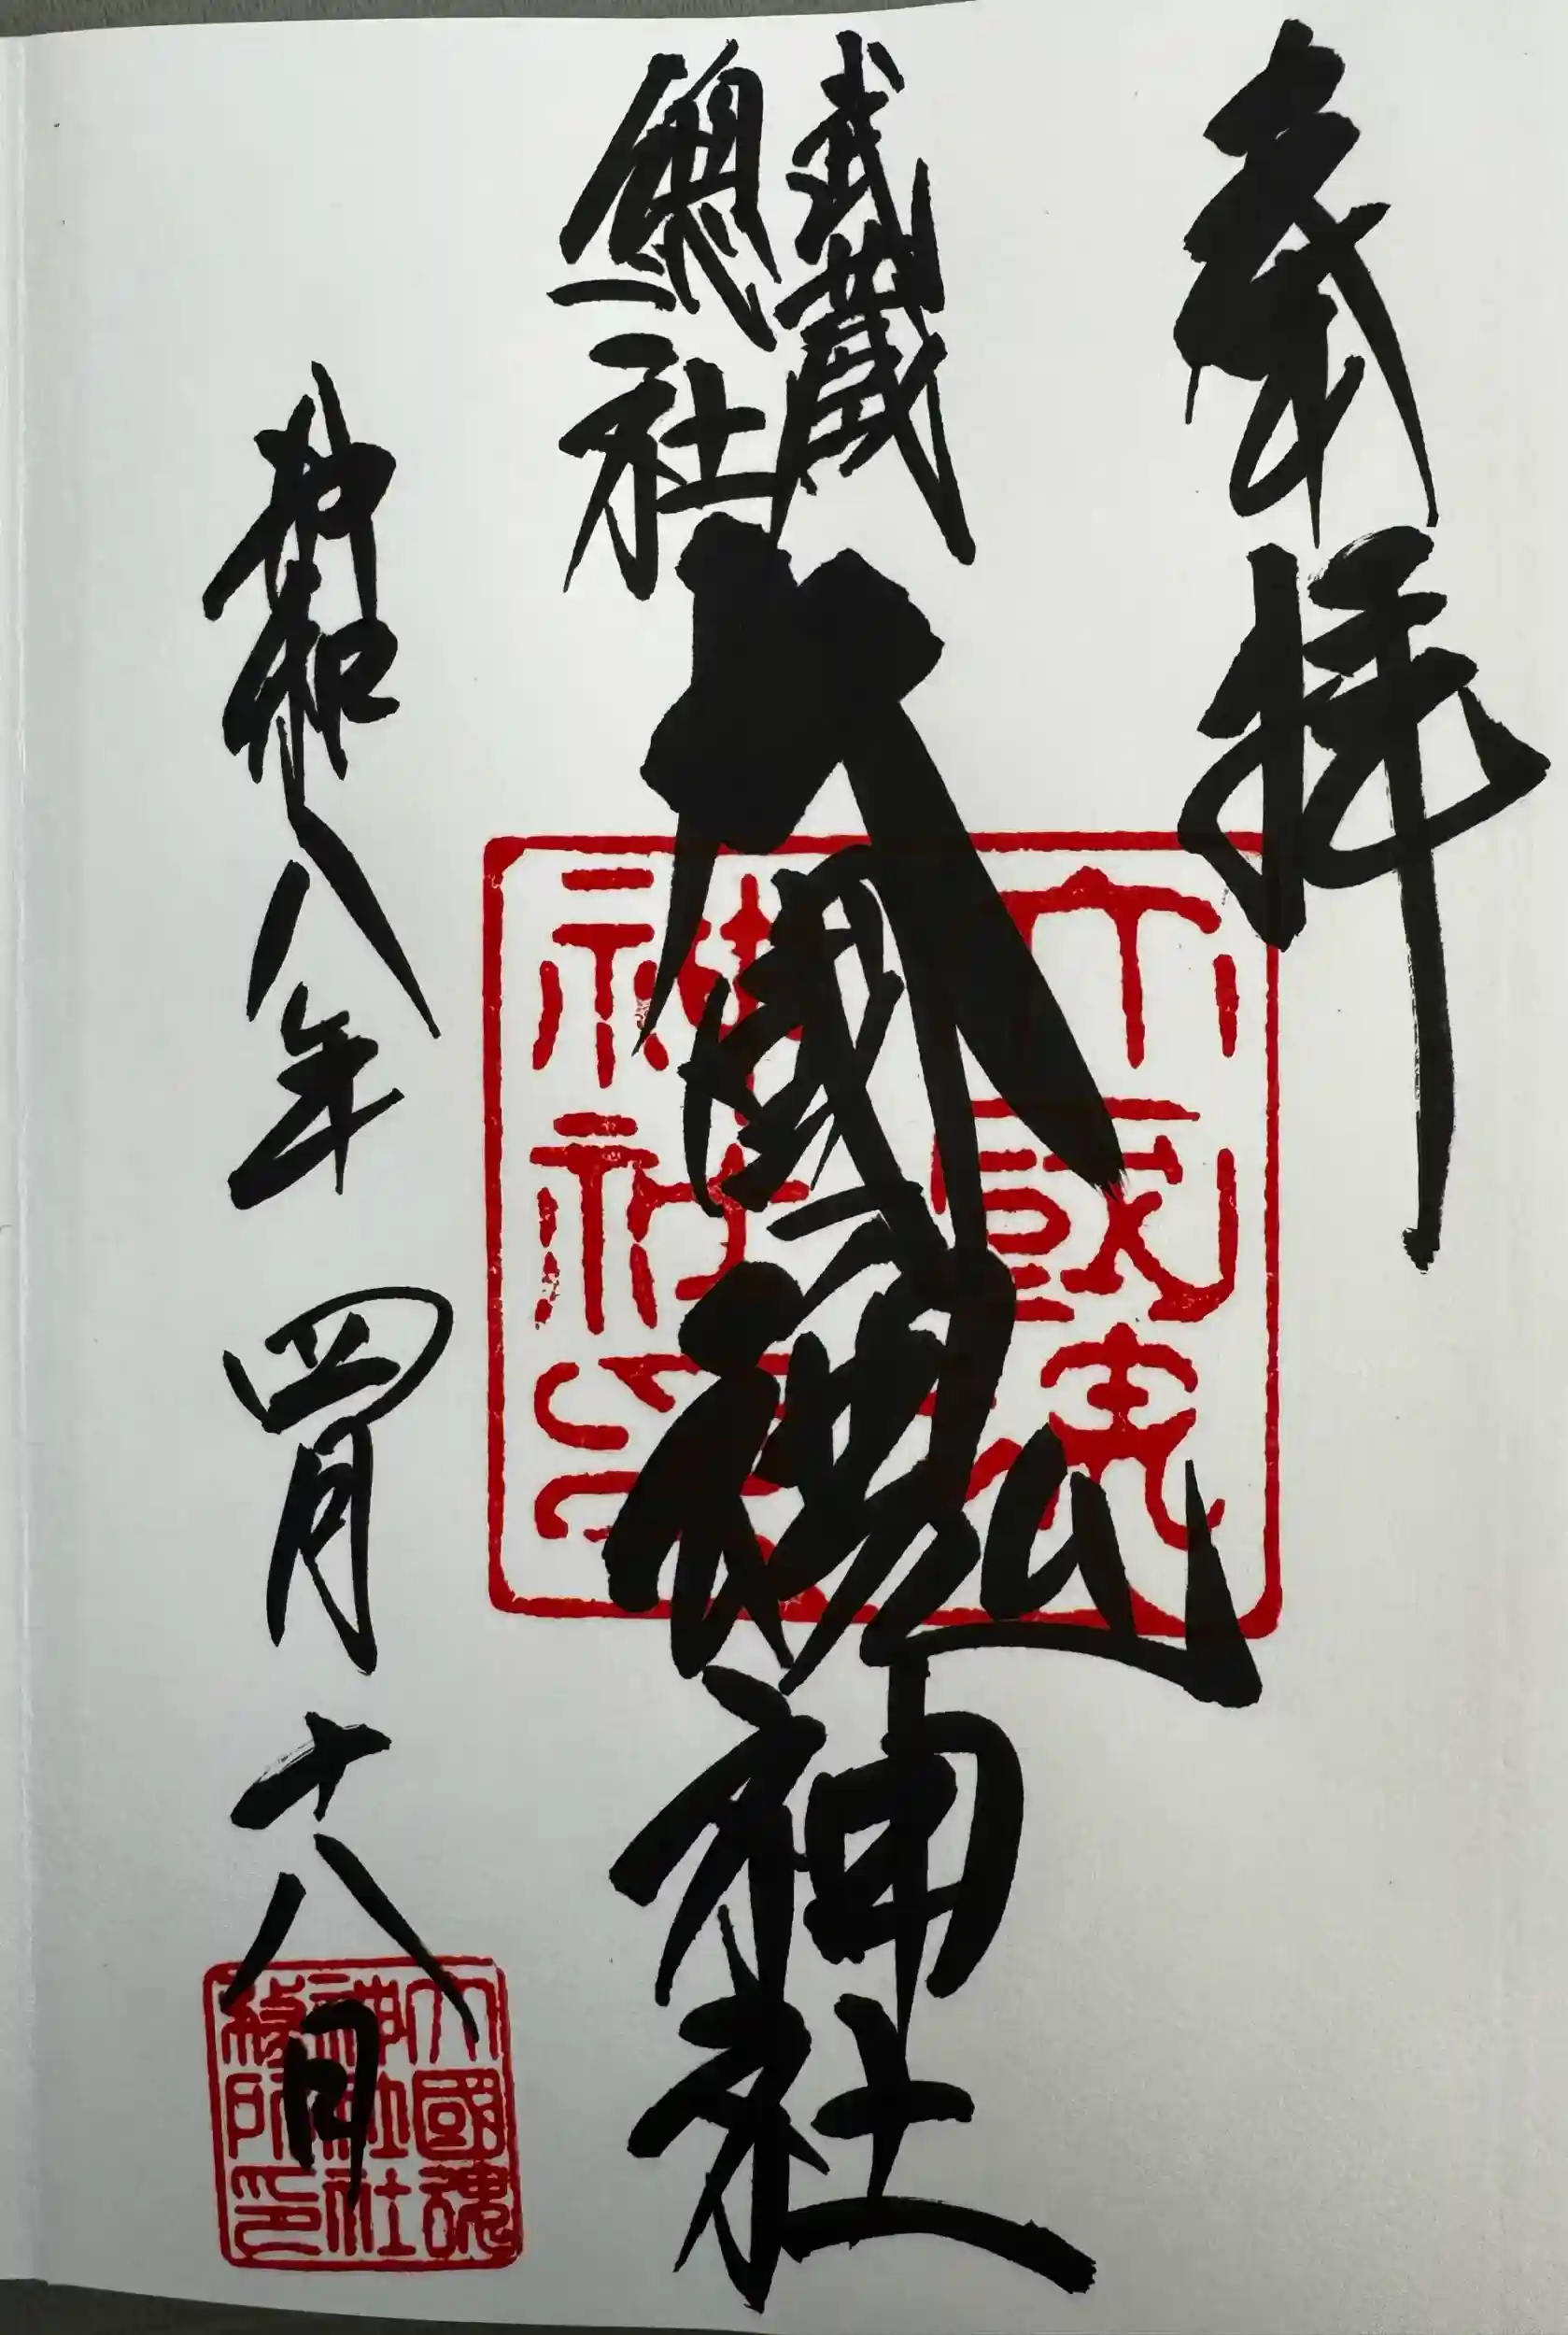 奉拝
武蔵
総社
大國魂神社
令和八年 四月 十八日
大國魂
神社印
大國魂
神社社
務所印